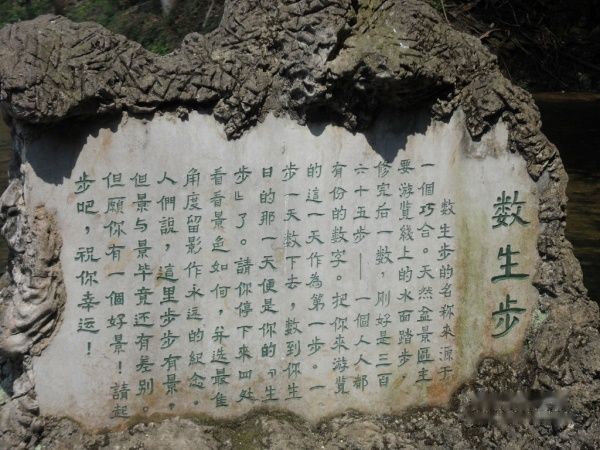 数生步
数生步的名称来源于
一個巧合。天然盆景區主
要游覧线上的水面踏步
修完后一数，刚好是三百
六十五步——一個人人都
有份的数字。把你来游覧
的這一天作為第一步。一
步一天数下去，数到你生
日的那一天便是你的『生
步』了。請你停下来四处
看看景色如何，并选最佳
角度留影作永远的紀念。
人們說，這里步步有景，
但景与景毕竟还有差别。
但願你有一個好景！請起
步吧，祝你幸运！